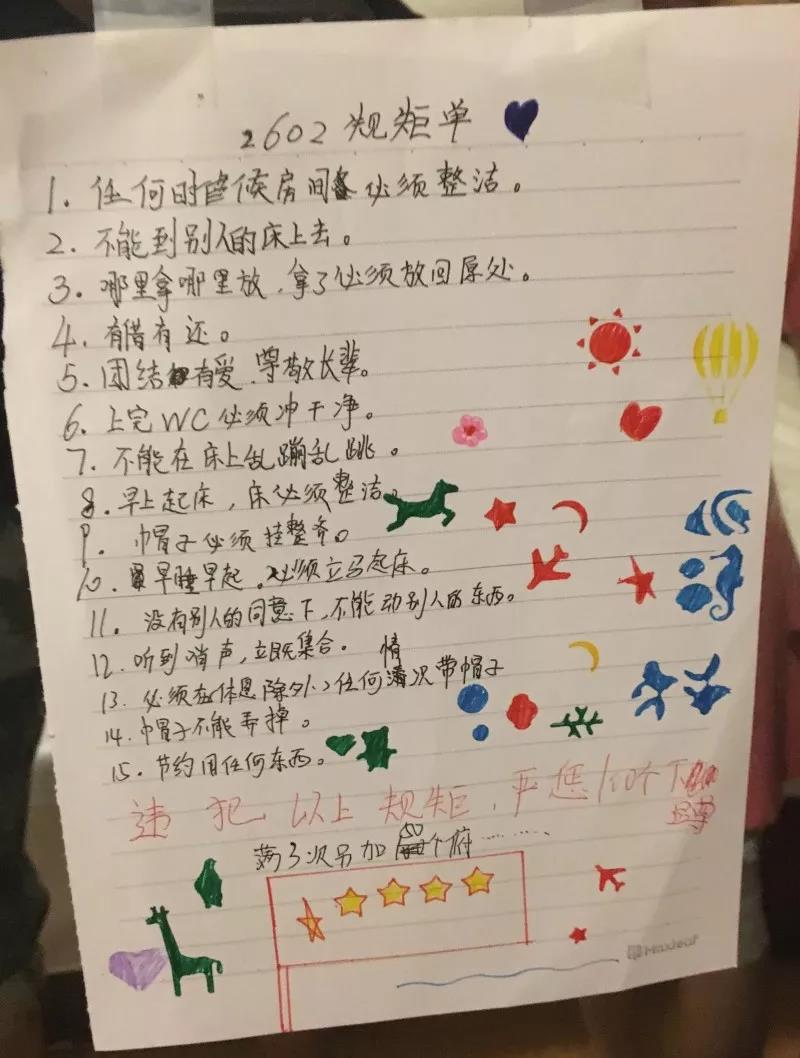 2602规矩单
1. 任何时候房间必须整洁。
2. 不能到别人的床上去。
3. 哪里拿哪里放,拿了必须放回原处。
4. 有借有还。
5. 团结有爱,尊敬长辈。
6. 上完WC必须冲干净。
7. 不能在床上乱蹦乱跳。
8. 早上起床,床必须整洁。
9. 帽子必须挂整齐。
10. 早睡早起,必须立马起床。
11. 没有别人的同意下,不能动别人的东西。
12. 听到哨声,立既集合。
13. 必须在(休息除外)任何情次带帽子
14. 帽子不能弄掉。
15. 节约用任何东西。
违犯以上规矩,严惩100个下蹲
满3次另加50个俯………
Maxleaf